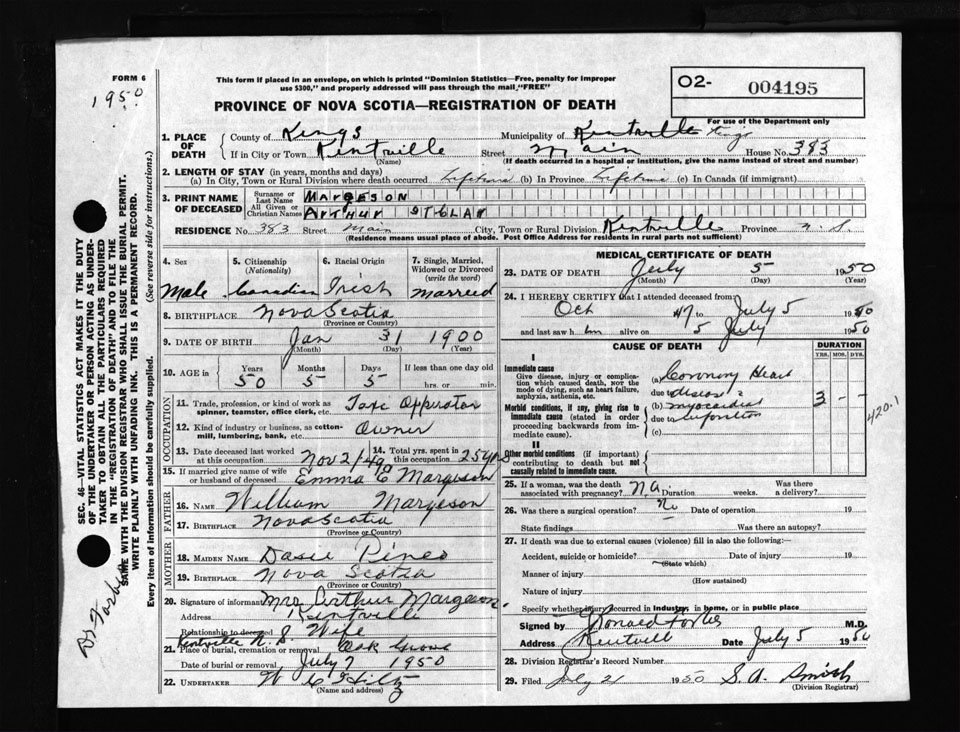 FORM 6
1950
This form if placed in an envelope, on which is printed "Dominion Statistics—Free, penalty for improper
use $300," and properly addressed will pass through the mail "FREE"
O2- 004195
PROVINCE OF NOVA SCOTIA—REGISTRATION OF DEATH
For use of the Department only
1. PLACE OF DEATH County of Kings Municipality of Kentville Kings
If in City or Town Kentville Street Main House No. 383
(Name) (If death occurred in a hospital or institution, give the name instead of street and number)
2. LENGTH OF STAY (in years, months and days)
(a) In City, Town or Rural Division where death occurred Lifetime (b) In Province Lifetime (c) In Canada (if immigrant)
3. PRINT NAME OF DECEASED Surname or Last Name MARGESON
All Given or Christian Names ARTHUR
RESIDENCE No. 383 Street Main City, Town or Rural Division Kentville Province N. S.
(Residence means usual place of abode. Post Office Address for residents in rural parts not sufficient)
4. Sex 5. Citizenship (Nationality) 6. Racial Origin 7. Single, Married, Widowed or Divorced (write the word)
Male Canadian Irish Married
8. BIRTHPLACE Nova Scotia
(Province or Country)
9. DATE OF BIRTH Jan 31 1900
(Month) (Day) (Year)
10. AGE in Years Months Days If less than one day old
50 5 5 hrs. or min.
OCCUPATION
11. Trade, profession, or kind of work as spinner, teamster, office clerk, etc. Taxi
12. Kind of industry or business, as cotton-mill, lumbering, bank, etc. Owner
13. Date deceased last worked at this occupation Nov 2/49 14. Total yrs. spent in this occupation 25 yrs
15. If married give name of wife or husband of deceased Emma E Margeson
FATHER
16. NAME William Margeson
17. BIRTHPLACE Nova Scotia
(Province or Country)
MOTHER
18. MAIDEN NAME Pineo
19. BIRTHPLACE Nova Scotia
(Province or Country)
20. Signature of informant Mrs Arthur Margeson
Address Kentville
Relationship to deceased Wife
Kentville N. S.
21. Place of burial, cremation or removal Oak Grove
Date of burial or removal July 7 1950
22. UNDERTAKER W
(Name and address)
MEDICAL CERTIFICATE OF DEATH
23. DATE OF DEATH July 5 1950
(Month) (Day) (Year)
24. I HEREBY CERTIFY that I attended deceased from:
Oct 47 to July 5 1950
and last saw h im alive on 5 July 1950
CAUSE OF DEATH DURATION
YRS. MOS. DYS.
I
Immediate cause
Give disease, injury or complication which caused death, NOT the mode of dying, such as heart failure, asphyxia, asthenia, etc.
(a) Coronary Heart
due to disease
Morbid conditions, if any, giving rise to immediate cause (stated in order proceeding backwards from immediate cause).
(b) myocardial 3 – –
due to infarction
(c)
420.1
II
Other morbid conditions (if important) contributing to death but not causally related to immediate cause.
25. If a woman, was the death associated with pregnancy? N.A. Duration weeks. Was there a delivery?
26. Was there a surgical operation? No Date of operation 19
State findings Was there an autopsy?
27. If death was due to external causes (violence) fill in also the following:—
Accident, suicide or homicide? Date of injury 19
(State which)
Manner of injury
(How sustained)
Nature of injury
Specify whether injury occurred in industry, in home, or in public place
Signed by Donald Forbes M.D.
Address Kentville Date July 5 1950
28. Division Registrar's Record Number
29. Filed July 21 1950 S. A. Smith
(Division Registrar)
SEC. 46—VITAL STATISTICS ACT MAKES IT THE DUTY
OF THE UNDERTAKER OR PERSON ACTING AS UNDER-
TAKER TO OBTAIN ALL THE PARTICULARS REQUIRED
IN THE "REGISTRATION OF DEATH" AND TO FILE THE
SAME WITH THE DIVISION REGISTRAR WHO SHALL ISSUE THE BURIAL PERMIT.
WRITE PLAINLY WITH UNFADING INK. THIS IS A PERMANENT RECORD.
Every item of information should be carefully supplied. (See reverse side for instructions.)
Dr Forbes